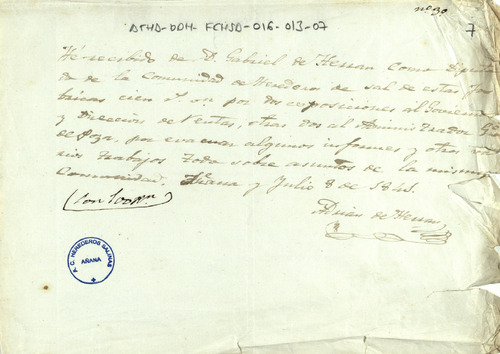 nº 30
ATHD-DDH-FCHSD-016-013-07
7
He recibido de D. Gabriel de Herran como Diputa
do de la Comunidad de Herederos de Sal de estas Fa
bricas cien r. vn por dos exposiciones al Gobierno
y Direccion de Rentas, otras dos al Administrador
de Poza, por evacuar algunos informes y otros va
rios trabajos todo sobre asuntos de la misma
Comunidad. Añana y Julio 8 de 1841.
Son 100 rvn
de Herran
A. C. HEREDEROS SALINAS
AÑANA